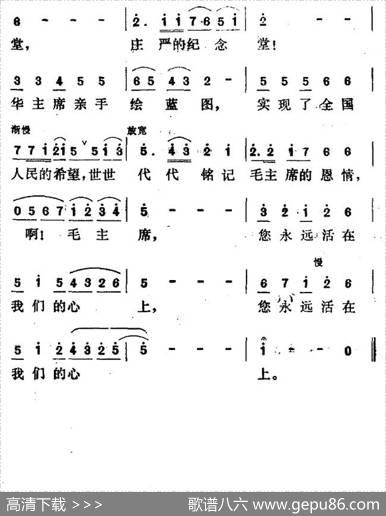 6 - - - | 2. 1 1 7 6 5 1 | 2 - - - |
堂， 庄严的纪念 堂！
3 3 4 5 5 | 6 5 4 3 2 - | 5 5 5 6 6
华主席亲手 绘蓝图， 实现了全国
渐慢 放宽
7 7 1 2 1 5 5 1 3 | 5. 4 3 2 1 | 2. 2 1 7 6 6
人民的希望，世世 代代铭记 毛主席的恩情，
0 5 6 7 1 2 3 4 | 5 - - - | 3 2 1 2 6
啊！毛主 席， 您永远活在
慢
5 1 5 4 3 2 | 5 - - - | 6 7 1 2 6
我们的心 上， 您永远活在
5 1 2 4 3 2 5 | 5 - - - | 1 - - 0 ‖
我们的心 上。
高清下载 >>> 歌谱八六 www.gepu86.com